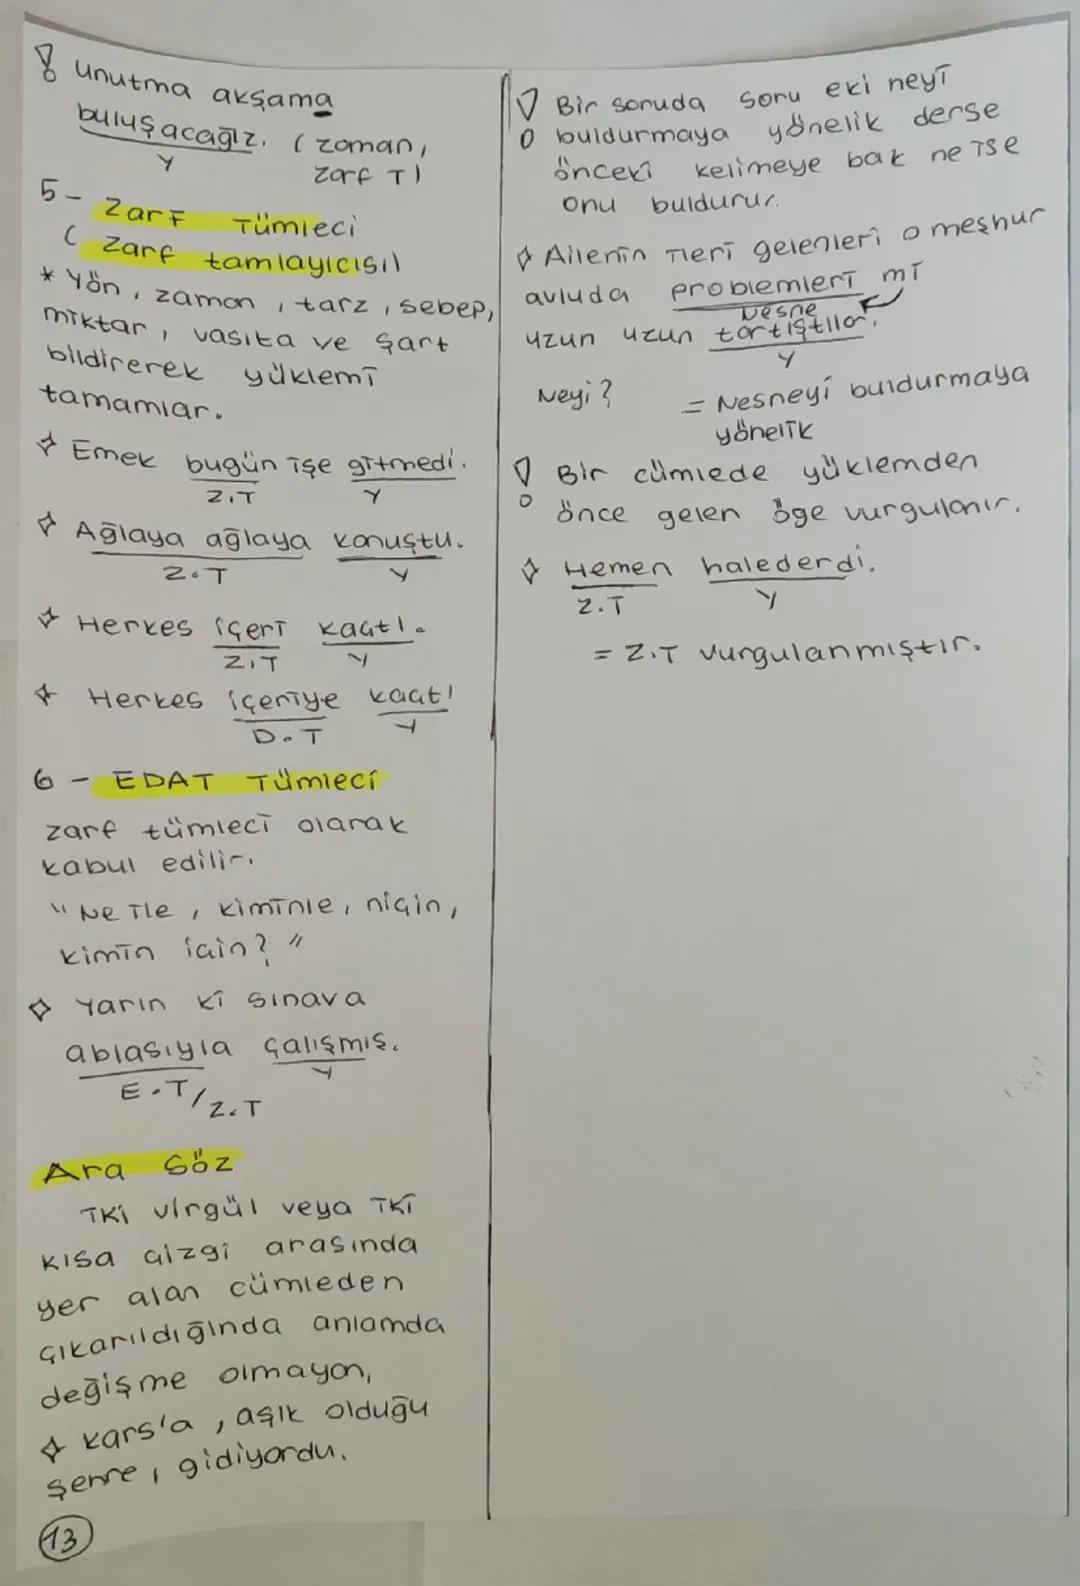 ! unutma akşama
buluşacağız. (zaman,
Y
zarf T)
5- Zarf Tümleci
( Zarf tamlayıcısı)
* Yön, zaman, tarz, sebep,
miktar, vasıta ve şart
bildirerek yüklemi
tamamlar.
✧ Emek bugün işe gitmedi.
Z.T Y
✧ Ağlaya ağlaya konuştu.
Z.T Y
✧ Herkes içeri kaçtı.
Z.T Y
✧ Herkes içeriye kaçtı
D.T Y
6 - EDAT Tümleci
zarf tümleci olarak
kabul edilir.
"Ne ile, kiminle, niçin,
kimin için?"
✧ Yarın ki sınava
ablasıyla çalışmış.
E.T/Z.T Y
Ara Söz
İki virgül veya iki
kısa çizgi arasında
yer alan cümleden
çıkarıldığında anlamda
değişme olmayan,
✧ Kars'a, aşık olduğu
şehre, gidiyordu.
13
! Bir soruda soru eki neyi
buldurmaya yönelik derse
önceki kelimeye bak ne ise
onu buldurur.
✧ Ailenin ileri gelenleri o meşhur
avluda problemleri mi
Nesne
uzun uzun tartıştılar.
Y
Neyi? = Nesneyi buldurmaya
yönelik
! Bir cümlede yüklemden
önce gelen öge vurgulanır.
✧ Hemen halederdi.
Z.T Y
= Z.T vurgulanmıştır.